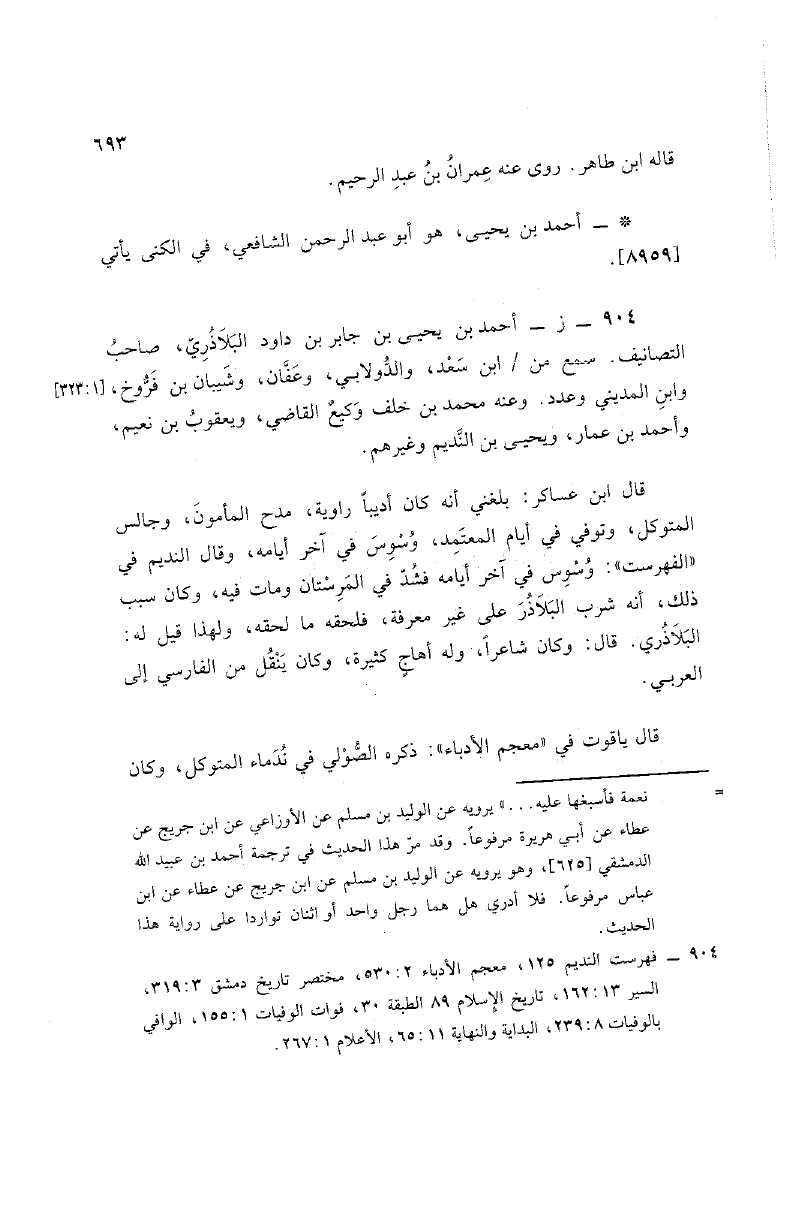 ٦٩٣
قاله ابن طاهر. روى عنه عِمرانُ بنُ عبدِ الرحيم.
* ــ أحمد بن يحيـى، هو أبو عبد الرحمن الشافعي، في الكنى يأتي
[٨٩٥٩].
٩٠٤ ــ ز ــ أحمد بن يحيـى بن جابر بن داود البَلَاذُرِيّ، صاحبُ
التصانيف. سمع من / ابن سَعْد، والدُّولابـي، وعَفَّان، وشَيبان بن فَرُّوخ، [٣٢٣:١]
وابنِ المديني وعدد. وعنه محمد بن خلف وَكيعٌ القاضي، ويعقوبُ بن نعيم،
وأحمد بن عمار، ويحيـى بن النَّديم وغيرهم.
قال ابن عساكر: بلغني أنه كان أديباً راوية، مدح المأمونَ، وجالس
المتوكل، وتوفي في أيام المعتَمِد، وُسْوِسَ في آخر أيامه، وقال النديم في
«الفهرست»: وُسْوِس في آخر أيامه فشُدّ في المَرِسْتان ومات فيه، وكان سبب
ذلك، أنه شرب البَلَاذُرَ على غير معرفة، فلحقه ما لحقه، ولهذا قيل له:
البَلَاذُري. قال: وكان شاعراً، وله أهاجٍ كثيرة، وكان يَنْقُل من الفارسي إلى
العربـي.
قال ياقوت في «معجم الأدباء»: ذكره الصُّوْلي في نُدَماء المتوكل، وكان
= نعمة فأسبغها عليه...» يرويه عن الوليد بن مسلم عن الأوزاعي عن ابن جريج عن
عطاء عن أبـي هريرة مرفوعاً. وقد مرّ هذا الحديث في ترجمة أحمد بن عبيد الله
الدمشقي [٦٢٥]، وهو يرويه عن الوليد بن مسلم عن ابن جريج عن عطاء عن ابن
عباس مرفوعاً. فلا أدري هل هما رجل واحد أو اثنان تواردا على رواية هذا
الحديث.
٩٠٤ ــ فهرست النديم ١٢٥، معجم الأدباء ٥٣٠:٢، مختصر تاريخ دمشق ٣١٩:٣،
السير ١٦٢:١٣، تاريخ الإسلام ٨٩ الطبقة ٣٠، فوات الوفيات ١٥٥:١، الوافي
بالوفيات ٢٣٩:٨، البداية والنهاية ٦٥:١١، الأعلام ٢٦٧:١.